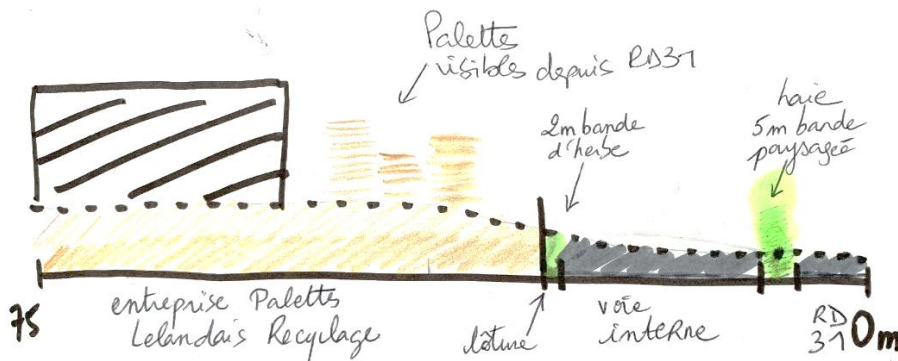 Palettes
visibles depuis RD31
haie
5m bande
paysagée
2m bande
d'herbe
75
entreprise Palettes
Lelandais Recyclage
clôture
voie
interne
RD
31
0m